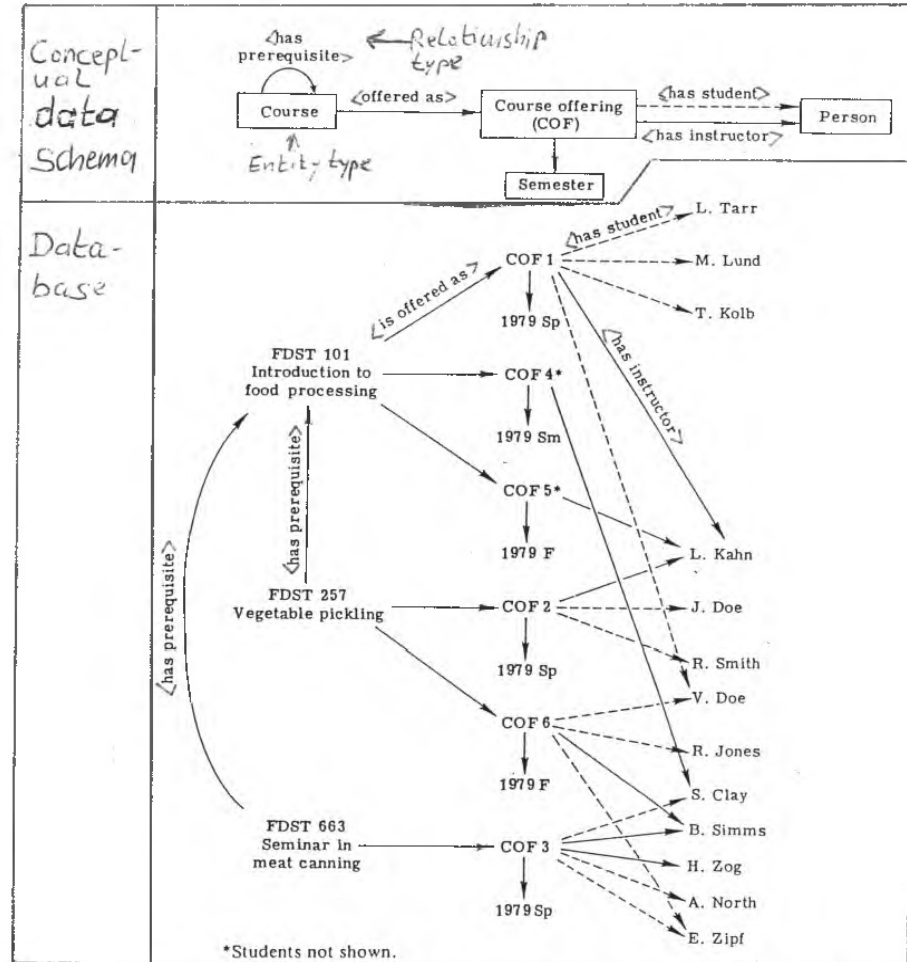 Concept-
ual
data
Schema
<has
prerequisite>
Relationship
type
Course
<offered as>
Course offering
(COF)
<has student>
<has instructor>
Person
Entity type
Semester
Data-
base
<is offered as>
COF 1
1979 Sp
<has student>
L. Tarr
M. Lund
T. Kolb
<has instructor>
FDST 101
Introduction to
food processing
COF 4*
1979 Sm
COF 5*
1979 F
<has prerequisite>
<has prerequisite>
L. Kahn
FDST 257
Vegetable pickling
COF 2
1979 Sp
J. Doe
R. Smith
V. Doe
COF 6
1979 F
R. Jones
S. Clay
B. Simms
FDST 663
Seminar in
meat canning
COF 3
1979 Sp
H. Zog
A. North
E. Zipf
*Students not shown.